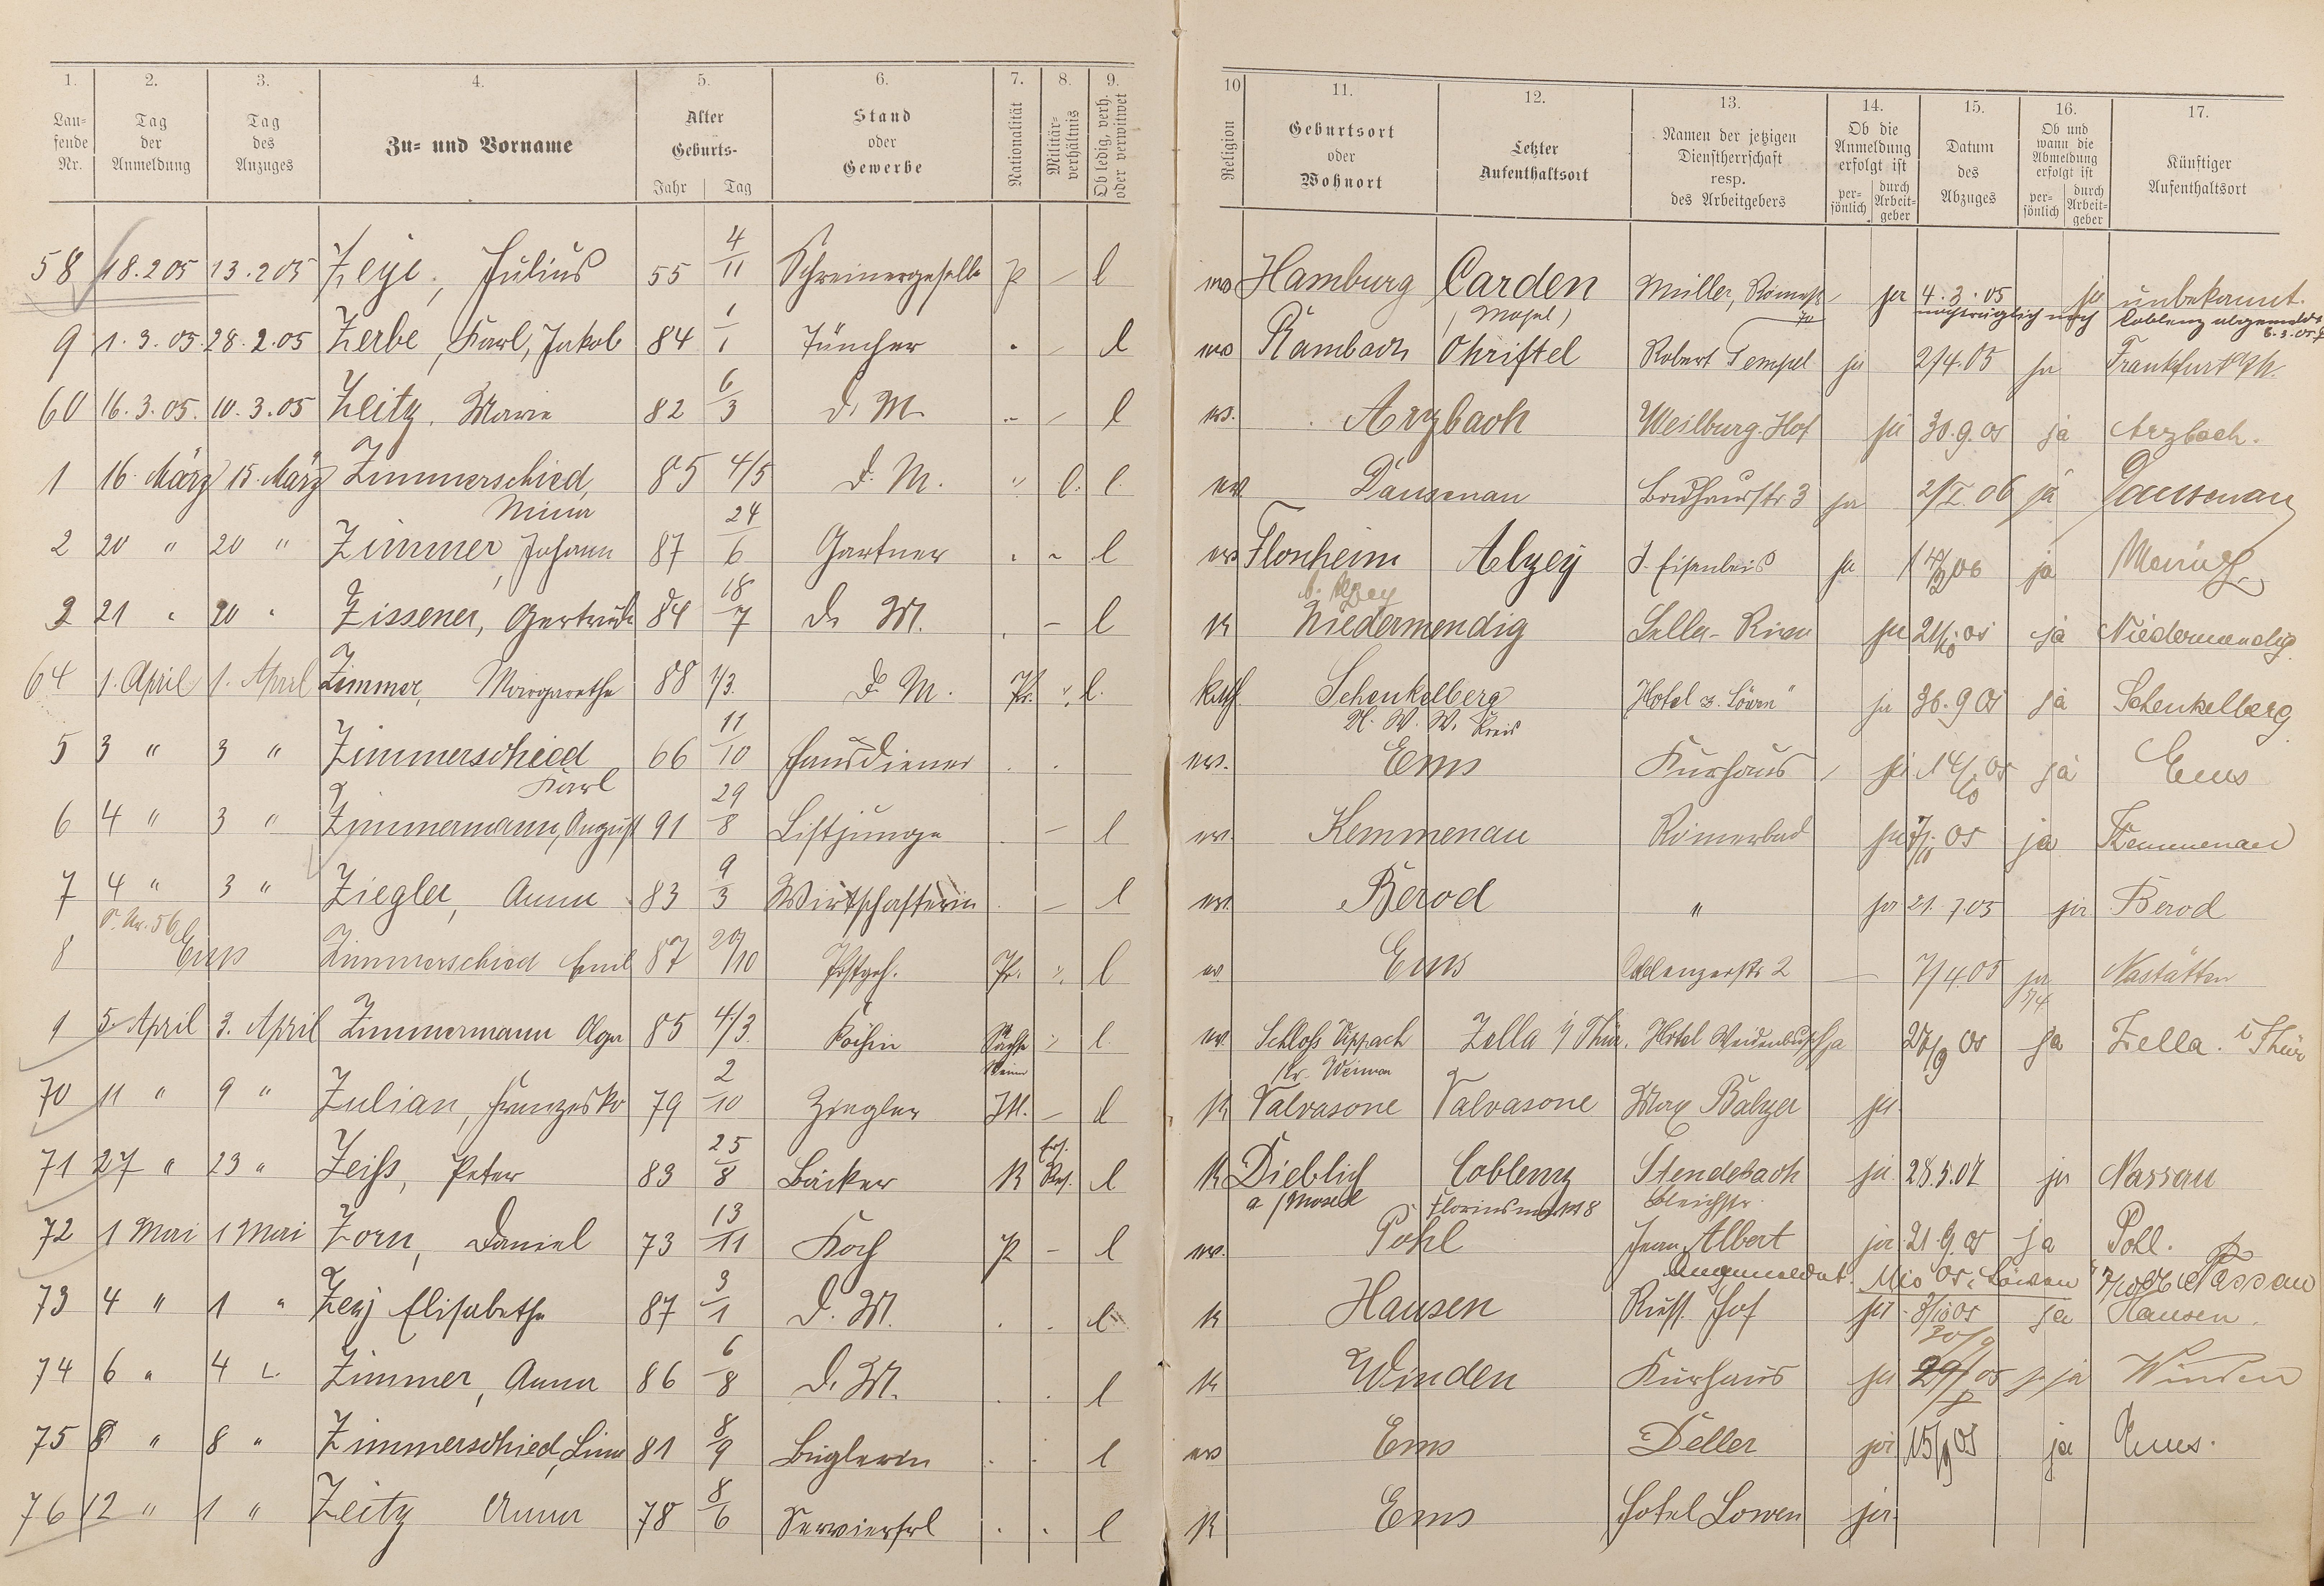 1. 2. 3. 4. 5. 6. 7. 8. 9. 10 11. 12. 13. 14. 15. 16. 17.
Lau-
fende
Nr.
Tag
der
Anmeldung
Tag
des
Anzuges
Zu- und Vorname
Alter
Geburts-
Jahr Tag
Stand
oder
Gewerbe
Nationalität
Militär-
verhältnis
Ob ledig, verh.
oder verwitwet
Religion
Geburtsort
oder
Wohnort
Letzter
Aufenthaltsort
Namen der jetzigen
Dienstherrschaft
resp.
des Arbeitgebers
Ob die
Anmeldung
erfolgt ist
per-
sönlich
durch
Arbeit-
geber
Datum
des
Abzuges
Ob und
wann die
Abmeldung
erfolgt ist
per-
sönlich
durch
Arbeit-
geber
Künftiger
Aufenthaltsort
58 18.2 05 13.2 05 Zeye, Julius 55 4/11 Schreinergeselle P – l Hamburg Carden (Mosel) Müller, ja 4.3.05 ja unbekannt.
nachträglich nach Coblenz abgemeldet
9 1.3.05. 28.2.05 Zerbe, Karl, Jakob 84 1/1 Tüncher " – l Rambach Ohriftel Robert Tempel ja 2/4.05 ja Frankfurt
60 16.3.05. 10.3.05 Zeitz, Marie 82 6/3 D. M. – l Arzbach Weilburg. Hof ja 30.9.05 ja Arzbach.
1 16. März 15. März Zimmerschied, Mina 85 4/5 D. M. " l. l. Dausenau 3 ja ja Dausenau
2 20 " 20 " Zimmer, Johann 87 24/6 Gartner l Flonheim b. Alzey Alzey J. Eisenbeis ja ja
3 21 " 20 " Zissener, Gertrude 84 18/7 D. M. – l K Niedermendig ja ja Niedermendig
64 1. April 1. April Zimmer, Margarethe 88 1/3. D. M. Pr. l. kath Schenkelberg Hotel z. Löwen ja 30.9 05 ja Schenkelberg
5 3 " 3 " Zimmerschied Karl 66 11/10 Hausdiener Ems Kurhaus ja 14/10 05 ja Ems
6 4 " 3 " Zimmermann, August 91 29/8 Liftjunge – l Kemmenau Römerbad ja ja Kemmenau
7 4 " 3 " Ziegler, Anna 83 9/3 Wirtschafterin – l Berod " ja 21.7.05 ja Berod
8 Ems Zimmerschied Emil 87 20/10 Postgeh. Pr. l Ems Coblenzerstr 2 – 7/4 05 ja 7/4 Nastätten
9 5. April 3. April Zimmermann Olga 85 4/3. Köchin l. Schloß Vippach Kr. Weimar Zella i/ Thür. Hotel Weidenbusch ja 27/9 05 ja Zella. i Thür
70 11 " 9 " Zulian, Franzesko 79 2/10 Ziegler It. – l K Valvasone Valvasone Max Balzer ja
71 27 " 23 " Zeiß, Peter 83 25/8 Bäcker K Ers. Res. l K Dieblich a/Mosel Coblenz Florinsmarkt 8 Stendebach Bleichstr. ja 28.5.07 ja Nassau
72 1 Mai 1 Mai Zorn, Daniel 73 13/11 Koch P – l Pohl Jean Albert ja 21.9.05 ja Pohl.
Angemeldet Nassau
73 4 " 1 " Zey Elisabethe 87 3/1 D. M. l K Hausen Russ. Hof ja 8/10 05 ja Hausen.
74 6 " 4 " Zimmer, Anna 86 6/8 D. M. l K Winden Kurhaus ja ja Winden
75 8 " 8 " Zimmerschied, Lina 81 8/9 Büglerin l Ems Deller ja 15/9 05 ja Ems.
76 12 " 1 " Zeitz Anna 78 8/6 Servierfrl l K Ems Hotel Lowen ja